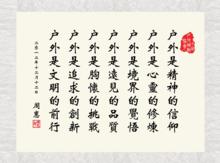 户外是精神的信仰
户外是心靈的修煉
户外是境界的覺悟
户外是遠見的品質
户外是胸懷的挑戰
户外是追求的創新
户外是文明的前行
二零一二年十二月十二日
周惠